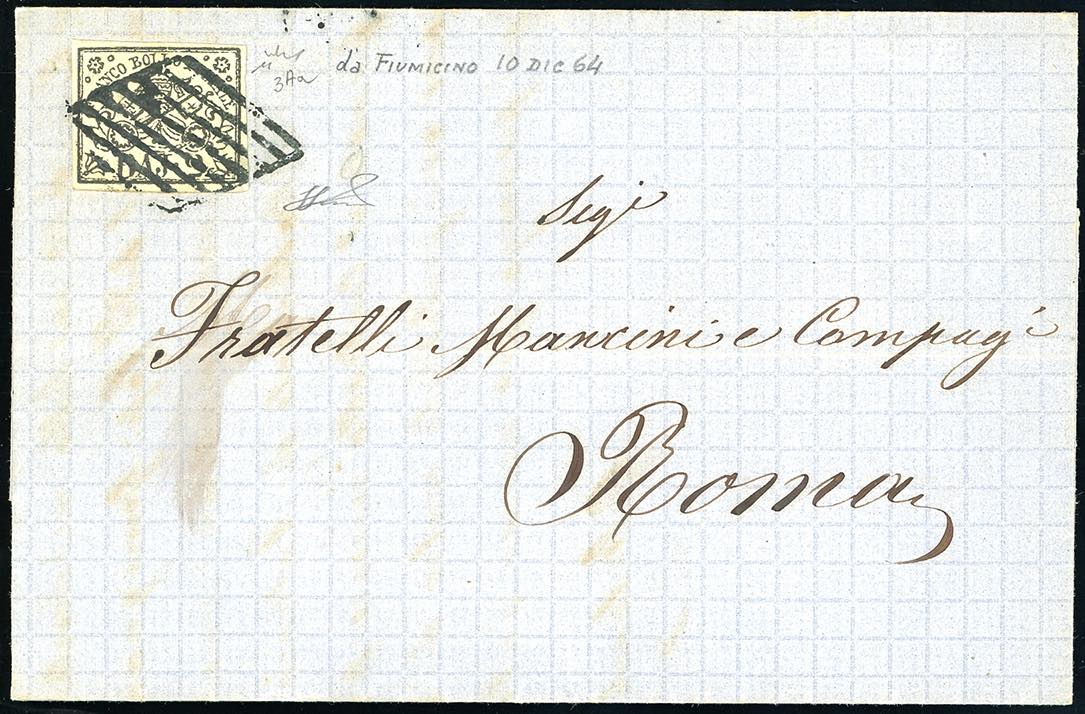 FRANCO BOLLO
BAJ
3Aa
da FIUMICINO 10 DIC 64
Sigi
Fratelli Mancini e Compagi
Roma